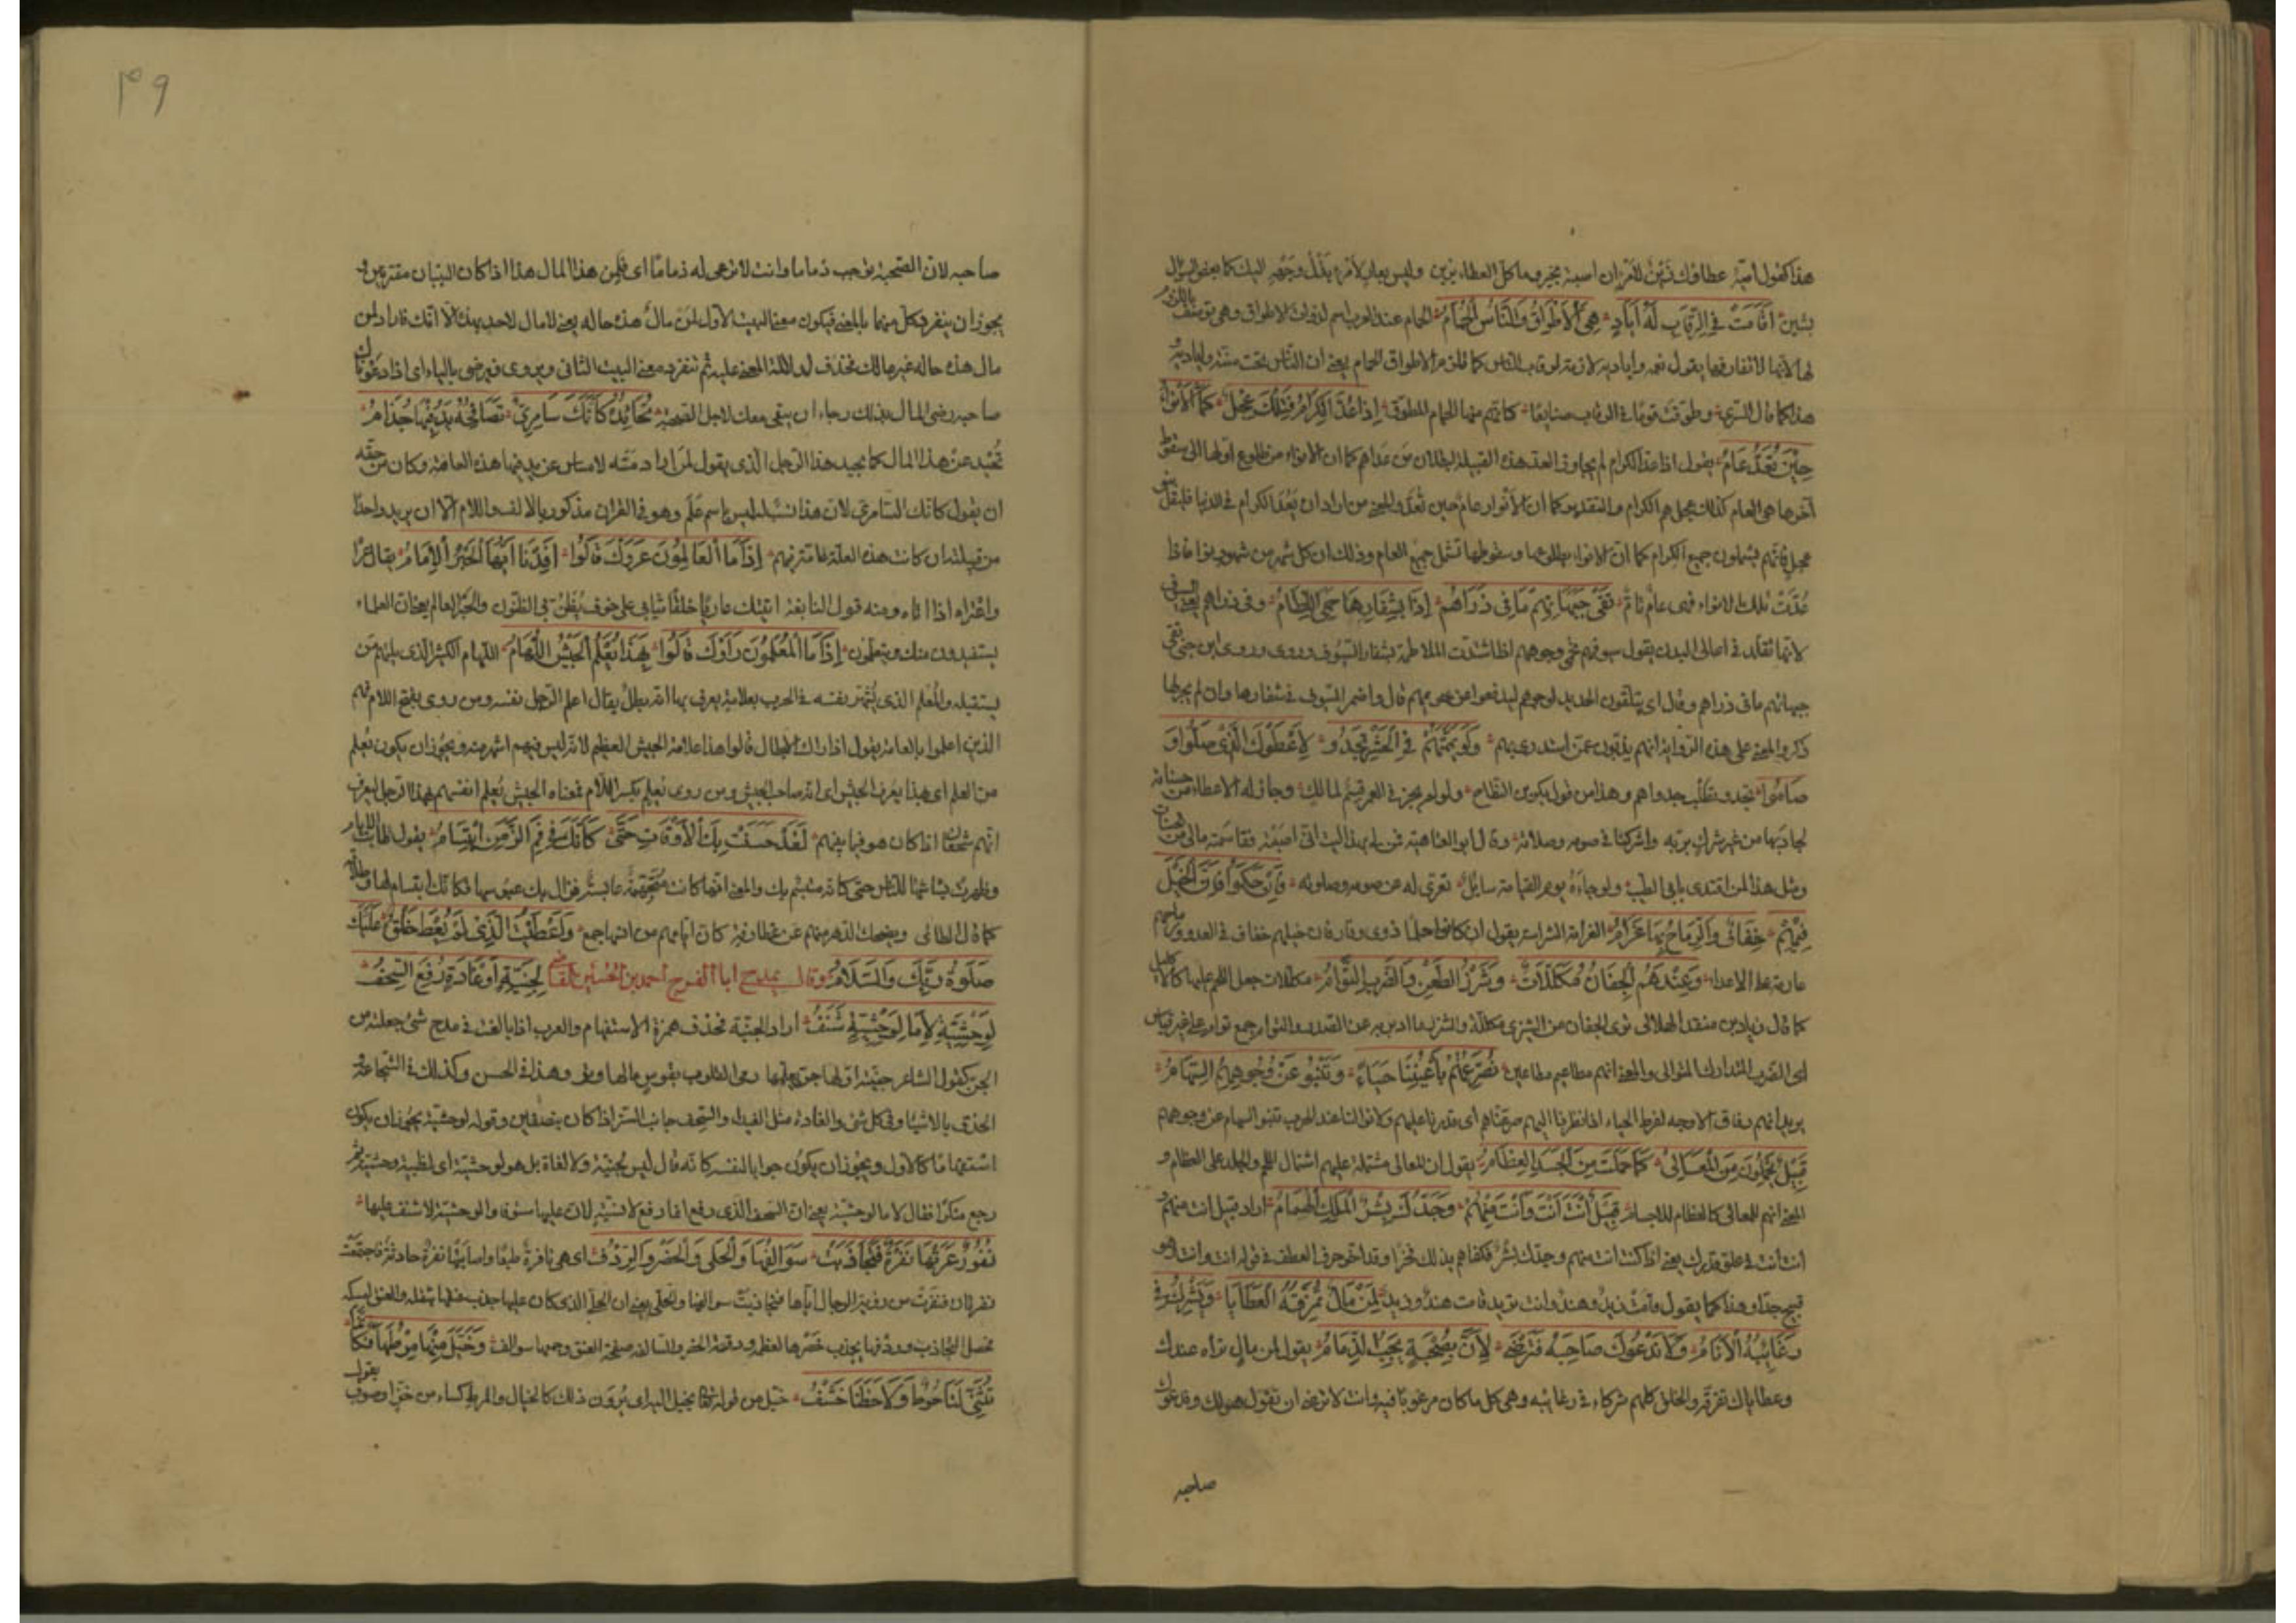 هذا كقول أميّة عطاؤك زَيْنٌ لامرئ ان اصبته بخير وما كل العطاء يزين وليس بعار لامرئ بذل وجهه اليك كما بعض السؤال
يشين أقَامَتْ فِي الرِّقَابِ لَهُ أَيَادٍ هِيَ الْأَطْوَاقُ وَالنَّاسُ الْحَمَامُ الحمام عند العرب اسم لذوات الاطواق وهي توصف باللزوم
لها لانها لا تفارقها يقول نعمه واياديه لازمة لرقاب الناس كما تلزم الاطواق الحمام يعني ان الناس تحت منته واياديه
هذا كما قال السري وطوقت قوما في الرقاب صنايعا كانهم منها الحمام المطوق إِذَا عُدَّ الْكِرَامُ فَتِلْكَ عِجْلٌ كَمَا الْأَنْوَاءُ
حِيْنَ تُعَدُّ عَامُ يقول اذا عد الكرام لم يجاوز العد هذه القبيلة كما ان الانواء من طلوع اولها الى سقوط
آخرها هي العام كذلك عجل هم الكرام والتقدير كما ان الأنواء عام حين تعد والمعنى من اراد ان يعد الكرام في الدنيا فليقل بنو
عجل فانهم يشملون جميع الكرام كما ان الانواء بطلوعها وسقوطها تشمل جميع العام وذلك ان كل شهر من شهوره نوا فاذا
عُدّت تلك الانواء فهى عام تام تَقِي جَبَهَاتُهُمْ مَا فِي ذَرَاهُمْ إِذَا بِشِفَارِهَا حَمِيَ اللِّطَامُ وفي ذراهم يعني السيوف
لانها تقلد في اعالى البدن يقول سيوفهم تحمي وجوههم اذا اشتدت الملاطمة بشفار السيوف وروى ابن جني تقى
جبهاتهم ما في ذراهم وقال اى يتلقون الحديد بوجوههم ليدفعوا عن حريمهم قال واضمر السيوف في شفارها وان لم يجر لها
ذكر والمعنى على هذه الرواية انهم يذبون عمن استذرى بهم وَلَوْ يَمَّمْتَهُمْ فِي الْحَشْرِ تَجْدُو لَأَعْطَوْكَ الَّذِي صَلَّوْا وَ
صَامُوا تجدو تطلب جدواهم وهذا من قول بكر بن النطاح ولو لم يجز في العمر قسم لمالك وجاز له الاعطاء من حسناته
لجاد بها من غير شرك بربه واشركنا في صومه وصلاته وقال ابو العتاهية فمن لي بهذا ليت اني اصبته فقاسمته مالي من الحسنات
ومثل هذا لمن اقتدى بابى الطيب ولو جاءه يوم القيامة سايل تعرى له عن صومه وصلوته فَإِنْ حَلُمُوا فَإِنَّ الْخَيْلَ
فِيْهِمْ خِفَافٌ وَالرِّمَاحُ بِهَا عُرَامُ العرام الشراسة يقول ان كانوا حلما ذوى وقار فان خيلهم خفاف في العدو ورماحهم
عارمة على الاعداء وَعِنْدَهُمُ الْجِفَانُ مُكَلَّلَاتٌ وَشَزْرُ الطَّعْنِ وَالضَّرْبُ التُّؤَامُ مكللات جعل اللحم عليها كالاكليل
كما قال زياد بن منقذ الهلالى ترى الجفان من الشيزى مكللة والشزر ما ادير به عن الصدر والتوام جمع توام على غير قياس
اى الضرب المتدارك المتوالى والمعنى انهم مطاعيم مطاعين نُصَرِّعُهُمْ بِأَعْيُنِنَا حَيَاءً وَتَنْبُو عَنْ وُجُوهِهِمُ السِّهَامُ
يريد انهم رقاق الاوجه لفرط الحياء اذا نظرنا اليهم صرعناهم اى قدرنا عليهم ولانوا لنا عند الحرب تنبو السهام عن وجوههم
قَبِيْلٌ يَحْمِلُونَ مِنَ الْمَعَالِيْ كَمَا حَمَلَتْ مِنَ الْجَسَدِ الْعِظَامُ يقول ان المعالى مشتملة عليهم اشتمال اللحم والجلد على العظام و
المعنى انهم للمعالى كالعظام للاجسام قَبِيْلٌ أَنْتَ أَنْتَ وَأَنْتَ مِنْهُمْ وَجَدُّكَ بِشْرٌ الْمَلِكُ الْهُمَامُ اراد قبيل انت منهم و
انت انت في علو قدرك يعني اذا كنت انت منهم وجدك بشر فكفاهم بذلك فخرا وقد اخر حرف العطف في قوله انت وانت وهو
قبيح جدا وهذا كما يقول قامت زيد وهند وانت تريد قامت هند وزيد لِمَنْ مَالٌ تُمَزِّقُهُ الْعَطَايَا وَيَشْرَكُ فِي
رَغَائِبِهِ الْأَنَامُ وَلَا نَدْعُوْكَ صَاحِبَهُ فَتَرْضَى لِأَنَّ بِصُحْبَةٍ يَجِبُ الذِّمَامُ يقول لمن مال نراه عندك
وعطاياك تفرقه والخلق كلهم شركاء في رغائبه وهى كل ما كان مرغوبا فيه وانت لا ترضى ان نقول هو لك وندعوك
صاحبه
٤٩
صاحبه لان الصحبة توجب ذماما وانت لا ترعى له ذماما اى فلمن هذا المال هذا اذا كان البيتان مقترنين و
يجوز ان ينفرد كل منهما بالمعنى فيكون معنى البيت الاول لمن مال هذه حاله يعني لا مال لاحد بهذه الا انك فاراد لمن
مال هذه حاله غير مالك فحذف لدلالة المعنى عليه ثم تنفرد معنى البيت الثانى ويروى فيرضى بالياء اى اذا دعوناك
صاحبه رضى المال بذلك رجاء ان يبقى معك لاجل الصحبة تُحَايِدُهُ كَأَنَّكَ سَامِرِيٌّ تُصَافِحُهُ يَدٌ فِيْهَا جُذَامُ
تحيد عن هذا المال كما يحيد هذا الرجل الذى يقول لمن اراد مسه لا مساس عن يد فيها هذه العاهة وكان من حقه
ان يقول كانك السامرى لان هذا نسب ليس باسم علم وهو في القران مذكور بالالف واللام الا ان يريد واحدا
من قبيلته ان كانت هذه العلة عامة فيهم إِذَا مَا الْعَالِمُونَ عَرَوْكَ قَالُوا أَفِدْنَا أَيُّهَا الْحَبْرُ الْإِمَامُ يقال عراه
واعتراه اذا اتاه ومنه قول النابغة اتيتك عاريا خلقا ثيابى على خوف تظن بى الظنون والحبر العالم يعني ان العلماء
يستفيدون منك ويتعلمون إِذَا مَا الْمُعْلِمُونَ رَأَوْكَ قَالُوا بِهَذَا يُعْلَمُ الْجَيْشُ اللُّهَامُ اللهام الكثير الذى يلتهم من
يستقبله والمعلم الذى يشهر نفسه في الحرب بعلامة يعرف بها انه بطل يقال اعلم الرجل نفسه ومن روى بفتح اللام فهم
الذين اعلموا بالعلامة يقول اذا راك الابطال قالوا هذا علامة الجيش العظيم لانه ليس فيهم اشهر منه ويجوز ان يكون يعلم
من العلم اى بهذا يعرف الجيش اى انه صاحب الجيش ومن روى يعلم بكسر اللام فمعناه الجيش يعلم انفسهم بهذا الرجل ليعرف
انهم شجعان اذا كان هو فيما بينهم لَقَدْ حَسُنَتْ بِكَ الْأَوْقَاتُ حَتَّى كَأَنَّكَ فِي فَمِ الزَّمَنِ ابْتِسَامُ يقول طابت بك الايام
وظهرت بشاشتها للناس حتى كانه مبتسم بك والمعنى انها كانت متجهمة عابسة فزال بك عبوسها فكانك ابتسام لها وطلاقة
كما قال الطائى ويضحك الدهر منهم عن غطارفة كان ايامهم من انسها جمع وَأُعْطِيْتَ الَّذِيْ لَمْ يُعْطَ خَلْقٌ عَلَيْكَ
صَلٰوةُ رَبِّكَ وَالسَّلَامُ وقال يمدح ابا الفرج احمد بن الحسين القاضى لِجِنِّيَّةٍ أَمْ غَادَةٍ رُفِعَ السَّجْفُ
لِوَحْشِيَّةٍ لَا مَا لِوَحْشِيَّةٍ شَنْفُ اراد الجنية فحذف همزة الاستفهام والعرب اذا بالغت في مدح شئ جعلته من
الجن كقول الشاعر جنية او لها جن يعلمها رمى القلوب بقوس ما لها وتر وهذا في الحسن وكذلك في الشجاعة و
الحذق بالاشياء وفي كل شئ والغادة مثل الغيداء والسجف جانب الستر اذا كان بنصفين وقوله لوحشية يجوز ان يكون
استفهاما كالاول ويجوز ان يكون جوابا لنفسه كانه قال ليس لجنية ولا لغادة بل هو لوحشية اى لظبية وحشية ثم
رجع منكرا فقال لا ما لوحشية يعني ان السجف الذى رفع انما رفع لانسية لان عليها شنوفا والوحشية لا شنف عليها
نَفُوْرٌ عَرَتْهَا نَفْرَةٌ فَتَجَاذَبَتْ سَوَالِفُهَا وَالْحَلْيُ وَالْخَصْرُ وَالرِّدْفُ اى هي نافرة طبعا واصابتها نفرة حادثة فاجتمعت
نفرتان فنفرت من رؤية الرجال اياها فتجاذبت سوالفها والحلى يعني ان الحلى الذى كان عليها جذب عنقها بثقله والعنق يمسكه
فحصل التجاذب وردفها يجذب خصرها لعظمه ورقة الخصر والسالفة صفحة العنق وجمعها سوالف وَخَيَّلَ مِنْهَا مِرْطُهَا فَكَأَنَّمَا
تَثَنَّى لَنَا خُوْطٌ وَلَاحَظَنَا خِشْفُ خيل من قوله تعالى يخيل اليه اى يرون ذلك كالخيال والمرط كساء من خز او صوف يقول